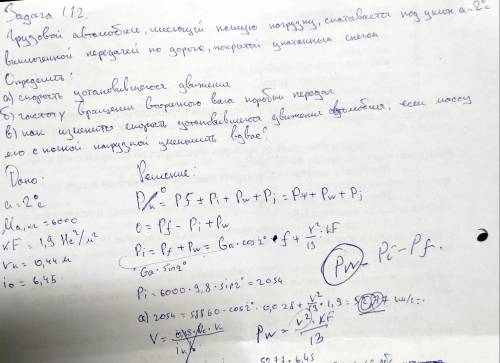 Задача 1.12.
Грузовой автомобиль, имеющий полную нагрузку, скатывается под уклон a=2° с
выключенной передачей по дороге, покрытой укатанным снегом
Определить:
а) скорость установившегося движения
б) частоту вращения вторичного вала коробки передач
в) как изменится скорость установившегося движения автомобиля, если массу
его с полной нагрузкой уменьшить вдвое?
Дано:
a=2°
Ma, кг = 6000
kF = 1,9 Нс²/м²
rк = 0,44 м
i₀ = 6,45
Решение:
Pк = Pf ± Pi + Pw + Pj = Pψ + Pw + Pj
0 = Pf - Pi + Pw
Pi = Pf + Pw = Ga · cos2° · f + v²·kF/13
Ga·sin2°
Pw = Pi - Pf.
Pi = 6000 · 9,8 · sin2° = 2054
a) 2054 = 58860 · cos2° · 0,028 + v²/13 · 1,9 =
V =
Pw = v²·kF/13